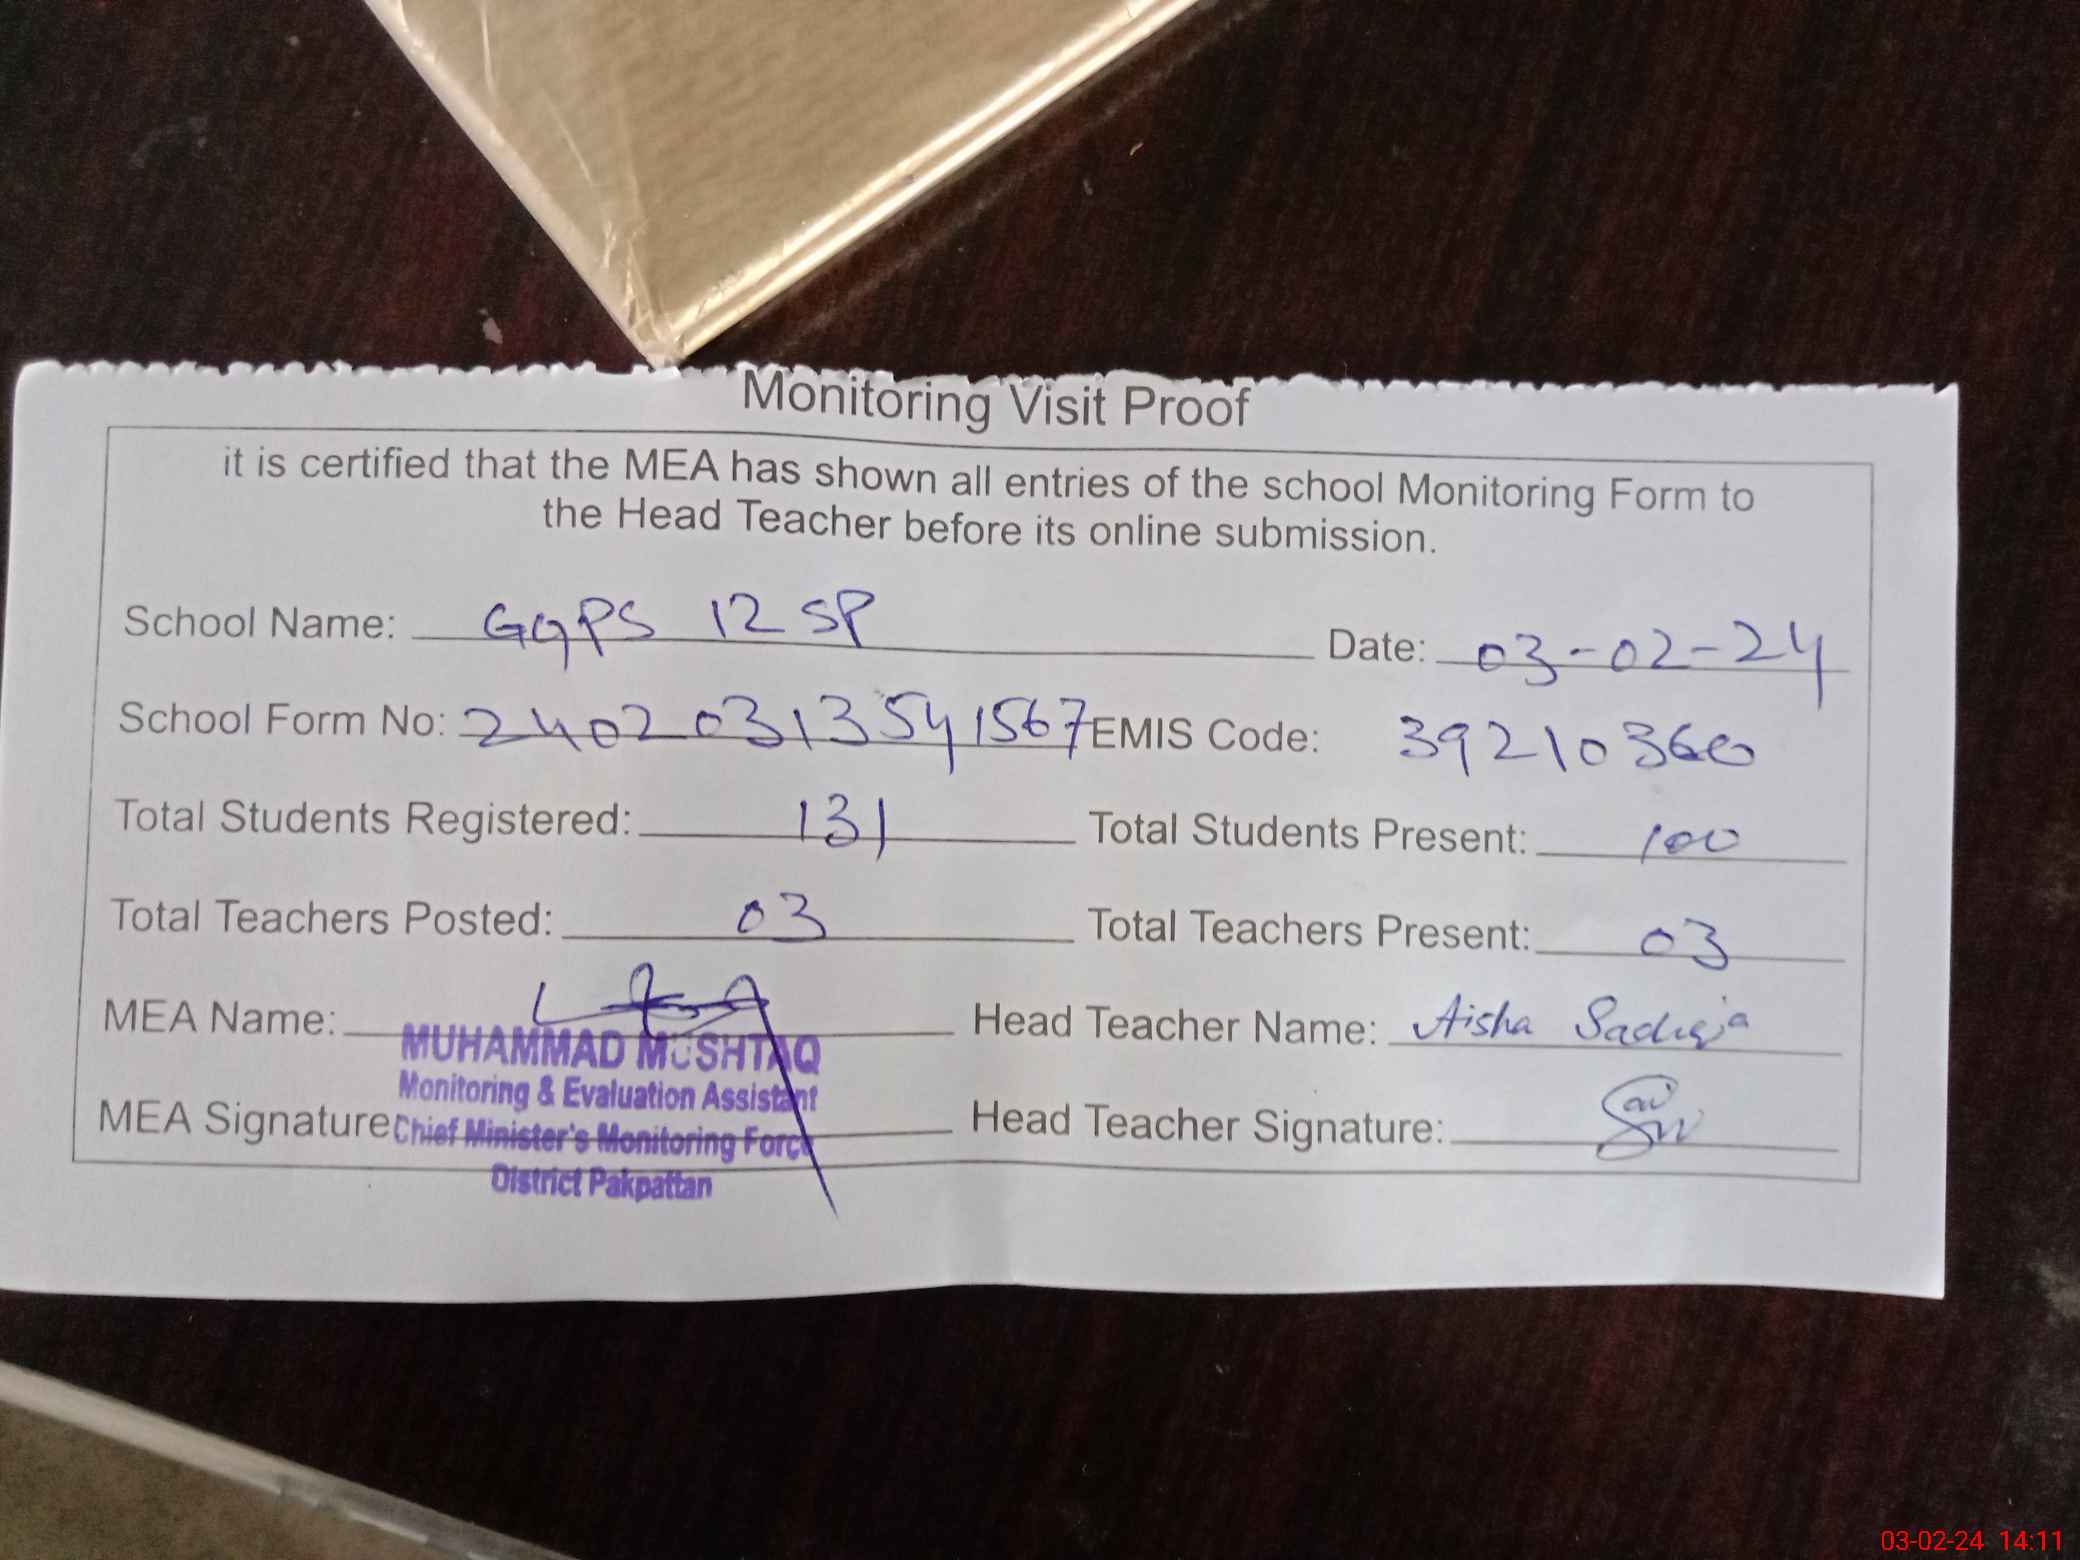 Monitoring Visit Proof
it is certified that the MEA has shown all entries of the school Monitoring Form to
the Head Teacher before its online submission.
School Name: GGPS 12 SP Date: 03-02-24
School Form No: 2402031354 1567 EMIS Code: 39210360
Total Students Registered: 131 Total Students Present: 100
Total Teachers Posted: 03 Total Teachers Present: 03
MEA Name: Head Teacher Name: Aisha
MUHAMMAD MUSHTAQ
Monitoring & Evaluation Assistant
MEA Signature Head Teacher Signature:
Chief Minister's Monitoring Force
District Pakpattan
03-02-24 14:11